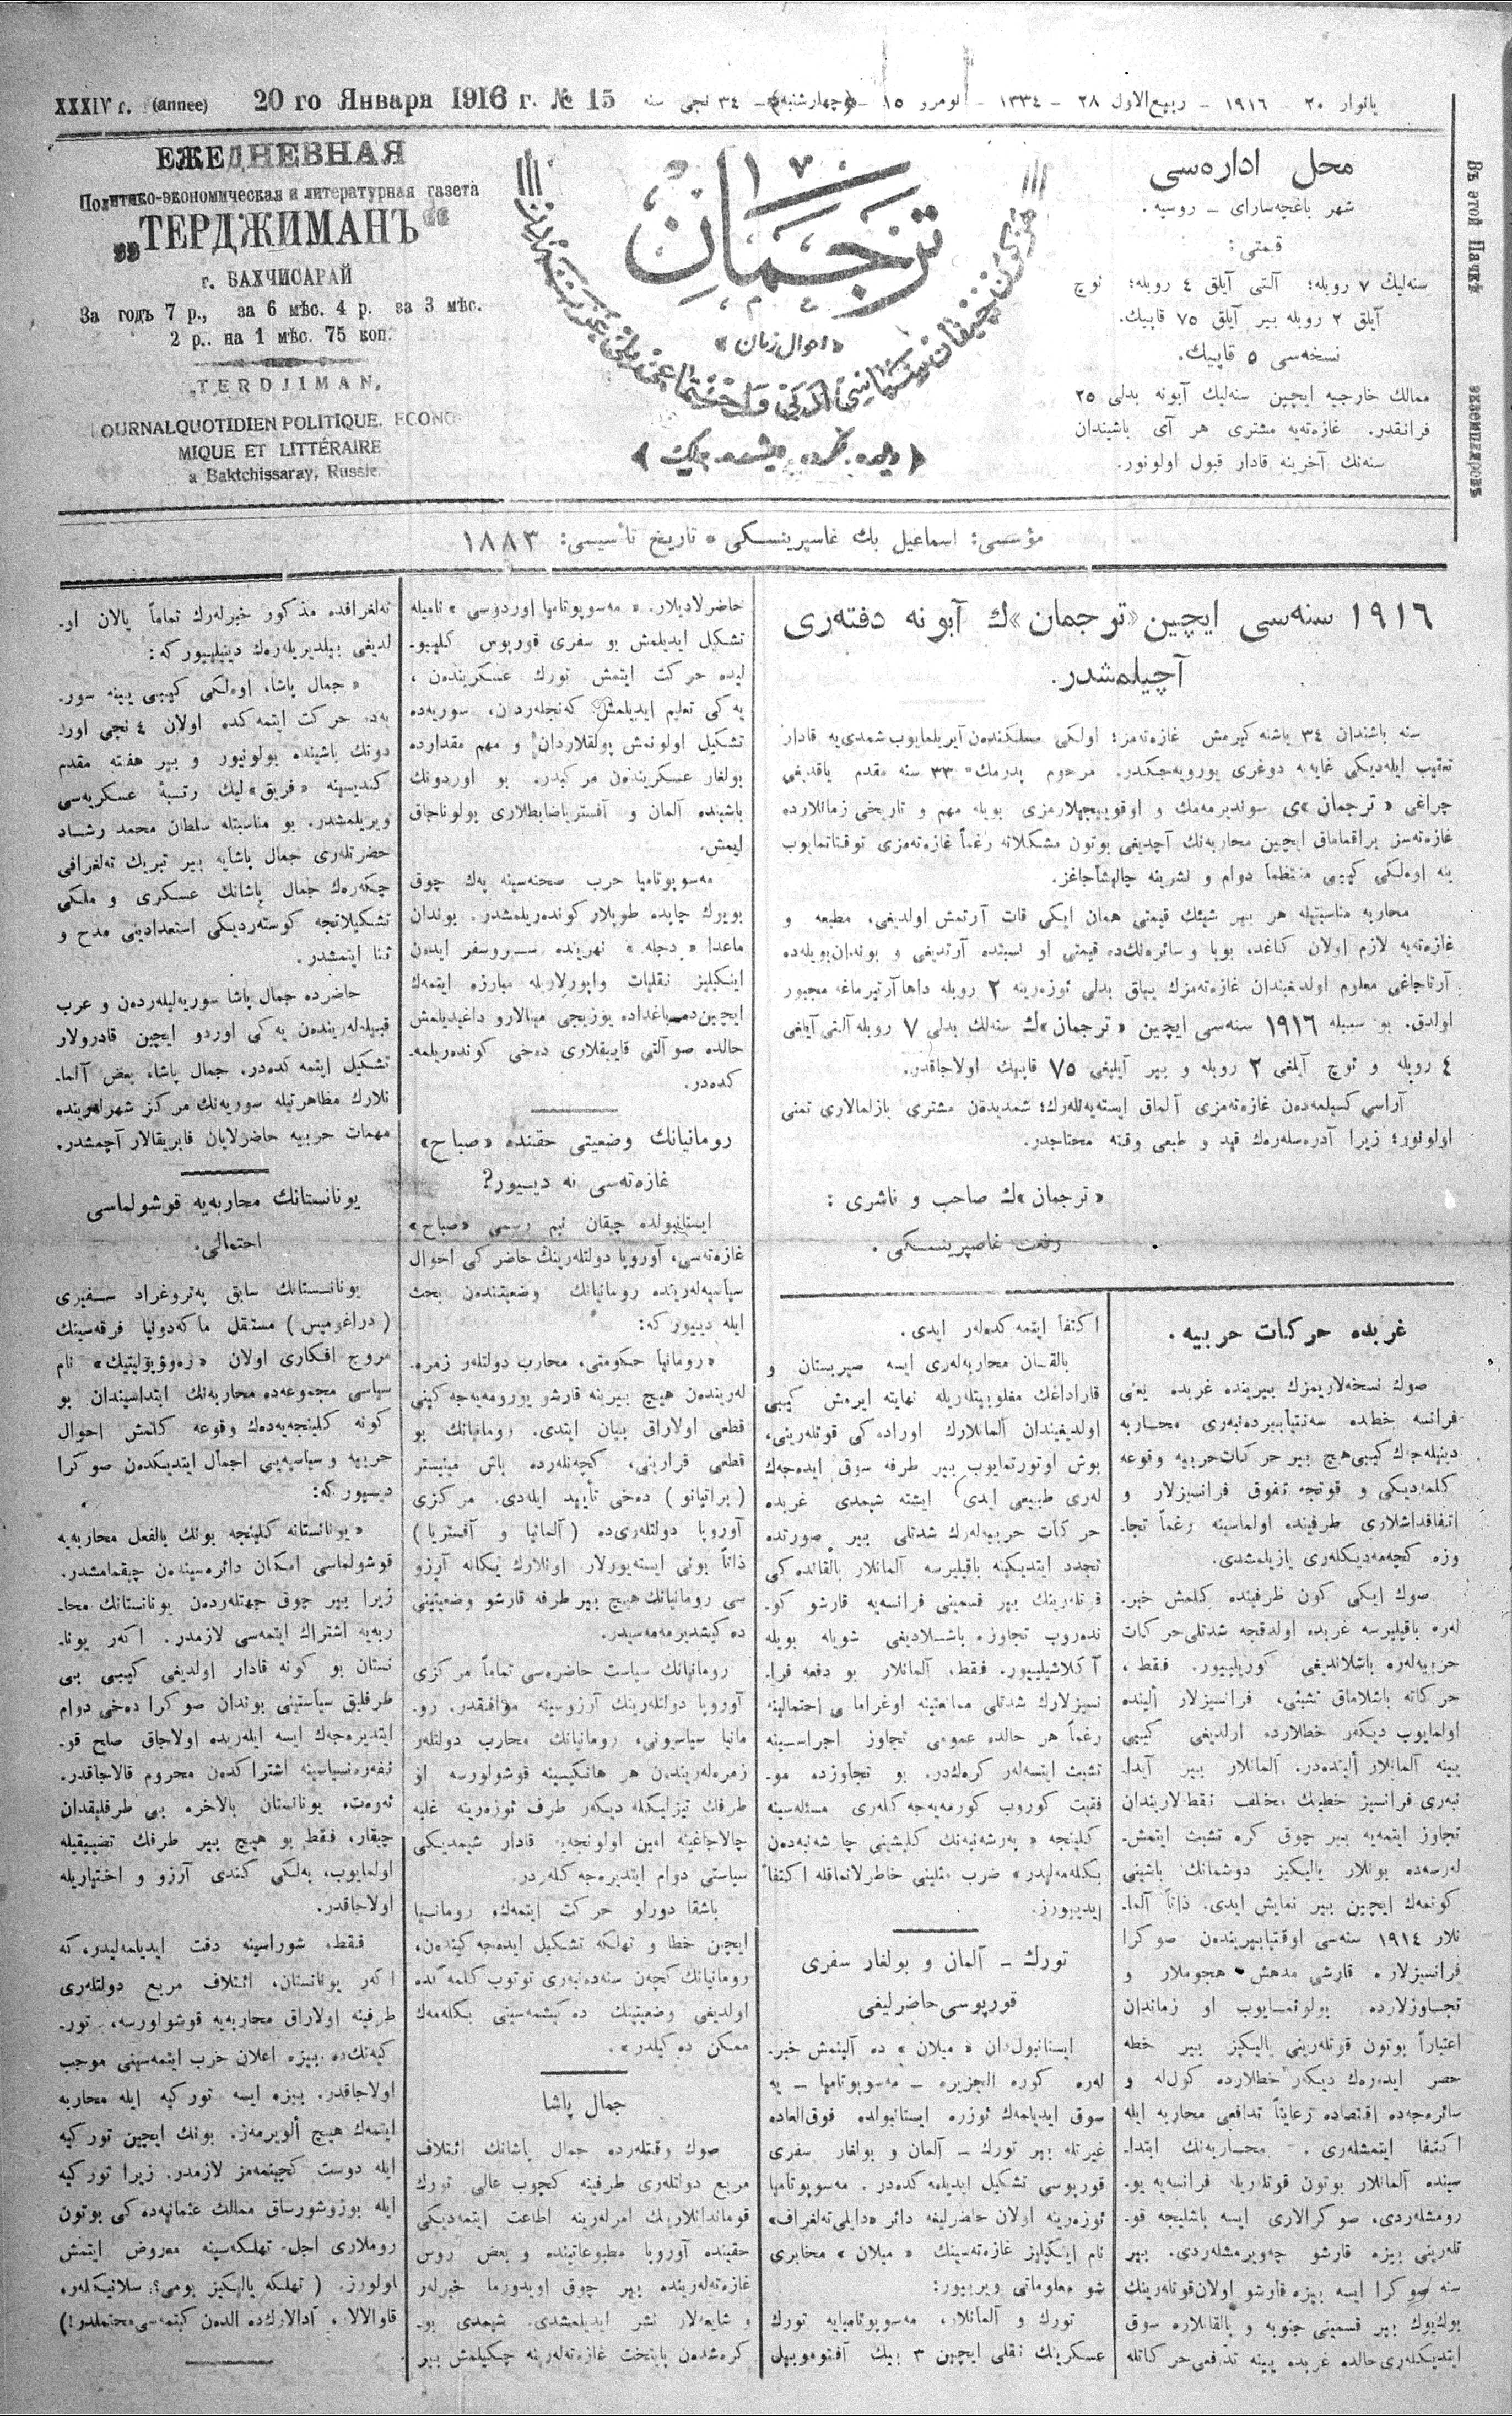 XXXIV г. (annee) 20 го Января 1916 г. № 15
يانوار ٢٠ - ١٩١٦ - ربيع‌الاول ٢٨ - ١٣٣٤ - نومرو ١٥ - ﴿چهارشنبه﴾ - ٣٤ نجی سنه
ЕЖЕДНЕВНАЯ
Политико-экономическая и литературная газета
„ТЕРДЖИМАНЪ“
г. БАХЧИСАРАЙ
За годъ 7 р., за 6 мѣс. 4 р. за 3 мѣс.
2 р.. на 1 мѣс. 75 коп.
„TERDJIMAN„
JOURNALQUOTIDIEN POLITIQUE, ECONO-
MIQUE ET LITTÉRAIRE
a Baktchissaray, Russie.
ترجمان
«احوال زمان»
﴿ديلده، فكرده، ايشده برلك﴾
محل اداره‌سی
شهر باغچه‌سارای ــ روسيه.
قيمتی:
سنه‌ليك ٧ روبله؛ آلتی آيلق ٤ روبله؛ ئوچ
آيلق ٢ روبله بير آيلق ٧٥ قاپيك.
نسخه‌سی ٥ قاپيك.
ممالك خارجيه ايچين سنه‌ليك آبونه بدلی ٢٥
فرانقدر. غازه‌ته‌يه مشتری هر آی باشيندان
سنه‌نك آخرينه قادار قبول اولونور.
Въ этой Пачкѣ
экземпляровъ
مؤسسی: اسماعيل بك غاسپرينسكی ٭ تاريخ تأسيسی: ١٨٨٣
١٩١٦ سنه‌سی ايچين «ترجمان»ك آبونه دفته‌ری
آچيلمشدر.
سنه باشندان ٣٤ ياشنه كيرمش غازه‌ته‌مز؛ اولكی مسلكنده‌ن آيريلمايوب شمدی‌يه قادار
تعقيب ايله‌ديكی غايه‌يه دوغری يورويه‌جكدر. مرحوم پدرمك ٣٣ سنه مقدم ياقديغی
چراغی «ترجمان»ی سونديرمه‌مك و اوقويیچيلارمزی بويله مهم و تاريخی زمانلارده
غازه‌ته‌سز براقماماق ايچين محاربه‌نك آچديغی بوتون مشكلاته رغماً غازه‌ته‌مزی توقتاتمايوب
ينه اوه‌لكی كيبی منتظماً دوام و نشرينه چاليشاجاغز.
محاربه مناسبتيله هر بير شيئك قيمتی همان ايكی قات آرتمش اولديغی، مطبعه و
غازه‌ته‌يه لازم اولان كاغد، بويا و سائره‌نك‌ده قيمتی او نسبتده آرتديغی و بوندان‌بويله‌ده
آرتاجاغی معلوم اولديغيندان غازه‌ته‌مزك يللق بدلی ئوزه‌رينه ٢ روبله داها آرتيرماغه مجبور
اولدق. بو سببله ١٩١٦ سنه‌سی ايچين «ترجمان»ك سنه‌لك بدلی ٧ روبله آلتی آيلغی
٤ روبله و ئوچ آيلغی ٢ روبله و بير آيليغی ٧٥ قاپيك اولاجاقدر.
آراسی كسيلمه‌دن غازه‌ته‌مزی آلماق ايسته‌يه‌نله‌رك؛ شمديدن مشتری يازلمالاری تمنی
اولونور؛ زيرا آدره‌سله‌رك قيد و طبعی وقته محتاجدر.
«ترجمان»ك صاحب و ناشری:
رفعت غاصپرينسكی.
غربده حركات حربيه.
صوك نسخه‌لاريمزك بيرينده غربده يعنی
فرانسه خطه‌ده سه‌نتيابيرده‌نبه‌ری محاربه
دينيله‌جك كيبی هيچ بير حركات حربيه وقوعه
كلمه‌ديكی و قوتجه تفوق فرانسيزلار و
اتفاقداشلاری طرفينده اولماسينه رغماً تجا-
وزه كچه‌مه‌ديكله‌ری يازيلمشدی.
صوك ايكی كون ظرفينده كلمش خبر-
له‌ره باقيليرسه غربده اولدقجه شدتلی حركات
حربيه‌له‌ره باشلانديغی كوريلييور. فقط،
حركاته باشلاماق تشبثی، فرانسيزلار ألينده
اولمايوب ديكه‌ر خطلارده اولديغی كيبی
يينه آلمانلار ألينده‌در. آلمانلار بير آيدا-
نبه‌ری فرانسيز خطينك مختلف نقطه‌لاريندان
تجاوز ايتمه‌يه بير چوق كره تشبث ايتمش-
له‌رسه‌ده بونلار يالكيز دوشمانك باشينی
كوتمه‌ك ايچين بير نمايش ايدی. ذاتاً آلما-
نلار ١٩١٤ سنه‌سی اوقتيابيرينده‌ن صوكرا
فرانسيزلاره قارشی مدهش هجوملار و
تجاوزلارده بولونمايوب او زماندان
اعتباراً بوتون قوتله‌رينی يالكيز بير خطه
حصر ايده‌رك ديكه‌ر خطلارده كول‌له و
سائره‌جه‌ده اقتصاده رعايتاً تدافعی محاربه ايله
اكتفا ايتمشله‌ری. - محاربه‌نك ابتدا-
سينده آلمانلار بوتون قوتله‌ريله فرانسه‌يه يو-
رومشله‌ردی، صوكرالاری ايسه باشليجه قو-
تله‌رينی بيزه قارشو چه‌ويرمشله‌ردی. بير
سنه صوكرا ايسه بيزه قارشو اولان قوتله‌رينك
بوك‌يوك بير قسمينی جنوبه و بالقانلاره سوق
ايتديكله‌ری حالده غربده يينه تدافعی حركاتله
اكتفا ايتمه‌كده‌له‌ر ايدی.
بالقان محاربه‌له‌ری ايسه صيربستان و
قاراداغك مغلوبيتله‌ريله نهايته ايره‌مش كيبی
اولديغيندان آلمانلارك اوراده‌كی قوتله‌رينی،
بوش اوتورتمايوب بير طرفه سوق ايده‌جه‌ك
له‌ری طبيعی ايدی. ايشته شيمدی غربده
حركات حربيه‌له‌رك شدتلی بير صورتده
تجدد ايتديكينه باقيليرسه آلمانلار بالقانده‌كی
قوتله‌رينك بير قسمينی فرانسه‌يه قارشو كو-
نده‌روب تجاوزه باشلاديغی شويله بويله
آكلاشيلييور. فقط، آلمانلار بو دفعه فرا-
نسيزلارك شدتلی ممانعتينه اوغراماسی احتمالينه
رغماً هر حالده عمومی تجاوز اجراسينه
تشبث ايتسه‌له‌ر كره‌كدر. بو تجاوزده مو-
فقيت كوروب كورمه‌يه‌جه‌كله‌ری مسئله‌سينه
كلينجه «په‌رشه‌نبه‌نك كليشينی چارشه‌نبه‌ده‌ن
بكله‌مه‌ليدر» ضرب مثلينی خاطرلاتماقله اكتفا
ايدييورز.
تورك ــ آلمان و بولغار سفری
قورپوسی حاضرليغی
ايستانبول‌دان «ميلان» ده آلينمش خبر-
له‌ره كوره الجزيره ــ مه‌سوپوتاميا ــ يه
سوق ايديلمه‌ك ئوزره ايستانبولده فوق‌العاده
غيرتله بير تورك ــ آلمان و بولغار سفری
قورپوسی تشكيل ايديلمه‌كده‌در. مه‌سوپوتاميا
ئوزه‌رينه اولان حاضرليغه دائر «دايلی‌ته‌لغراف»
نام اينكيليز غازه‌ته‌سينك «ميلان» مخابری
شو معلوماتی ويرييور:
تورك و آلمانلار، مه‌سوپوتاميايه تورك
عسكرينك نقلی ايچين ٣ بيك آفتوموبيل
حاضرلاديلار. «مه‌سوپوتاميا اوردوسی» ناميله
تشكيل ايديلمش بو سفری قورپوس كليبو-
ليده حركت ايتمش تورك عسكرينده‌ن،
يه‌كی تعليم ايديلمش كه‌نجله‌ردن، سوريه‌ده
تشكيل اولونمش پولقلاردان و مهم مقدارده
بولغار عسكرينده‌ن مركبدر. بو اوردونك
باشينده آلمان و آفستريا ضابطلاری بولوناجاق
ايمش.
مه‌سوپوتاميا حرب صحنه‌سينه په‌ك چوق
بويوك چاپده طوپلار كونده‌ريلمشدر. بوندان
ماعدا «دجله» نهرينده سير و سفر ايده‌ن
اينكيليز نقليات واپورلاريله مبارزه ايتمه‌ك
ايچين‌ده باغداده يوزيجی مينالارو داغيديلمش
حالده صو آلتی قاييقلاری ده‌خی كونده‌ريلمه-
كده‌در.
رومانيانك وضعيتی حقنده «صباح»
غازه‌ته‌سی نه دييور؟
ايستانبولده چيقان نيم رسمی «صباح»
غازه‌ته‌سی، آوروپا دولتله‌رينك حاضركی احوال
سياسيه‌له‌رينده رومانيانك وضعيتنده‌ن بحث
ايله دييوركه:
«رومانيا حكومتی، محارب دولتله‌ر زمره-
له‌رينده‌ن هيچ بيرينه قارشو يورومه‌يه‌جه‌كينی
قطعی اولاراق بيان ايتدی. رومانيانك بو
قطعی قرارينی، كچه‌نله‌رده باش مينيستر
(براتيانو) ده‌خی تأييد ايله‌دی. مركزی
آوروپا دولتله‌ری‌ده (آلمانيا و آفستريا)
ذاتاً بونی ايسته‌يورلار. اونلارك يكانه آرزو
سی رومانيانك هيچ بير طرفه قارشو وضعيتينی
ده‌كيشديرمه‌مه‌سيدر.
رومانيانك سياست حاضره‌سی تماماً مركزی
آوروپا دولتله‌رينك آرزوسينه موافقدر. رو-
مانيا سياسيونی، رومانيانك محارب دولتله‌ر
زمره‌له‌رينده‌ن هر هانكيسينه قوشولورسه او
طرفك تيزليكله ديكه‌ر طرف ئوزه‌رينه غلبه
چالاجاغينه امين اولونجه‌يه قادار شيمديكی
سياستی دوام ايتديره‌جه‌كله‌ردر.
باشقا دورلو حركت ايتمه‌ك، رومانيا
ايچين خطا و تهلكه تشكيل ايده‌جه‌كينده‌ن،
رومانيانك كچه‌ن سنه‌ده‌نبه‌ری توتوب كلمه‌كده
اولديغی وضعيتينك ده‌كيشمه‌سينی بكله‌مه‌ك
ممكن ده‌كيلدر».
جمال پاشا
صوك وقتله‌رده جمال پاشانك ائتلاف
مربع دولتله‌ری طرفينه كچوب عالی تورك
قوماندانلارينك امرله‌رينه اطاعت ايتمه‌ديكی
حقينده آوروپا مطبوعاتينده و بعض روس
غازه‌ته‌له‌رينده بير چوق اويدورما خبرله‌ر
و شايعه‌لار نشر ايديلمشدی. شيمدی بو-
كره‌شده‌ن پايتخت غازه‌ته‌له‌رينه چكيلمش بير
ته‌لغرافده مذكور خبرله‌رك تماماً يالان او-
لديغی بيلديريله‌ره‌ك دينيلييوركه:
«جمال پاشا، اوه‌لكی كيبی يينه سور-
يه‌ده حركت ايتمه‌كده اولان ٤ نجی اور-
دونك باشينده بولونيور و بير هفته مقدم
كنديسينه «فريق» ليك رتبۀ عسكريه‌سی
ويريلمشدر. بو مناسبتله سلطان محمد رشاد
حضرتله‌ری جمال پاشايه بير تبريك ته‌لغرافی
چكه‌ره‌ك جمال پاشانك عسكری و ملكی
تشكيلاتجه كوسته‌رديكی استعدادينی مدح و
ثنا ايتمشدر.
حاضرده جمال پاشا سوريه‌ليله‌رده‌ن و عرب
قبيله‌له‌رينده‌ن يه‌كی اوردو ايچين قادرولار
تشكيل ايتمه‌كده‌در. جمال پاشا، بعض آلما-
نلارك مظاهرتيله سوريه‌نك مركز شهرله‌رينده
مهمات حربيه حاضرلايان فابريقالار آچمشدر.
يونانستانك محاربه‌يه قوشولماسی
احتمالی.
يونانستانك سابق په‌تروغراد سفيری
(دراغوميس) مستقل ماكه‌دونيا فرقه‌سينك
مروج افكاری اولان «ره‌وۋپوليتيك» نام
سياسی مجموعه‌ده محاربه‌نك ابتداسيندان بو
كونه كلينجه‌يه‌ده‌ك وقوعه كلمش احوال
حربيه و سياسيه‌يی اجمال ايتديكدن صوكرا
دييوركه:
«يونانستانه كلينجه بونك بالفعل محاربه‌يه
قوشولماسی امكان دائره‌سينده‌ن چيقمامشدر.
زيرا بير چوق جهتله‌رده‌ن يونانستانك محا-
ربه‌يه اشتراك ايتمه‌سی لازمدر. اكه‌ر يونا-
نستان بو كونه قادار اولديغی كيبی بی
طرفليق سياستينی بوندان صوكرا ده‌خی دوام
ايتديره‌جه‌ك ايسه ايله‌ريده اولاجاق صلح قو-
نفه‌ره‌نسياسينه اشتراكدن محروم قالاجاقدر.
ئه‌وه‌ت، يونانستان بالاخره بی طرفليقدان
چيقار، فقط بو هيچ بير طرفك تضييقيله
اولمايوب، به‌لكی كندی آرزو و اختياريله
اولاجاقدر.
فقط، شوراسينه دقت ايديلمه‌ليدر، كه
اكه‌ر يونانستان، ائتلاف مربع دولتله‌ری
طرفينه اولاراق محاربه‌يه قوشولورسه، تور-
كيه‌نك‌ده بيزه اعلان حرب ايتمه‌سينی موجب
اولاجاقدر. بيزه ايسه توركيه ايله محاربه
ايتمه‌ك هيچ ألويرمه‌ز. بونك ايچين توركيه
ايله دوست كچينمه‌مز لازمدر. زيرا توركيه
ايله بوزوشورساق ممالك عثمانيه‌ده‌كی بوتون
روملاری اجل تهلكه‌سينه معروض ايتمش
اولورز. (تهلكه يالكيز بومی؟ سلانيكله‌ر،
قاوالالا، آدالارك‌ده الدن كيتمه‌سی محتملدر!)